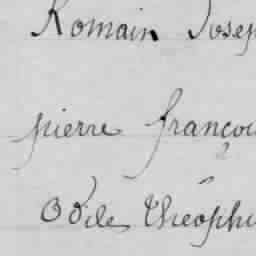 Romain Josep
pierre françou
Odile théophi